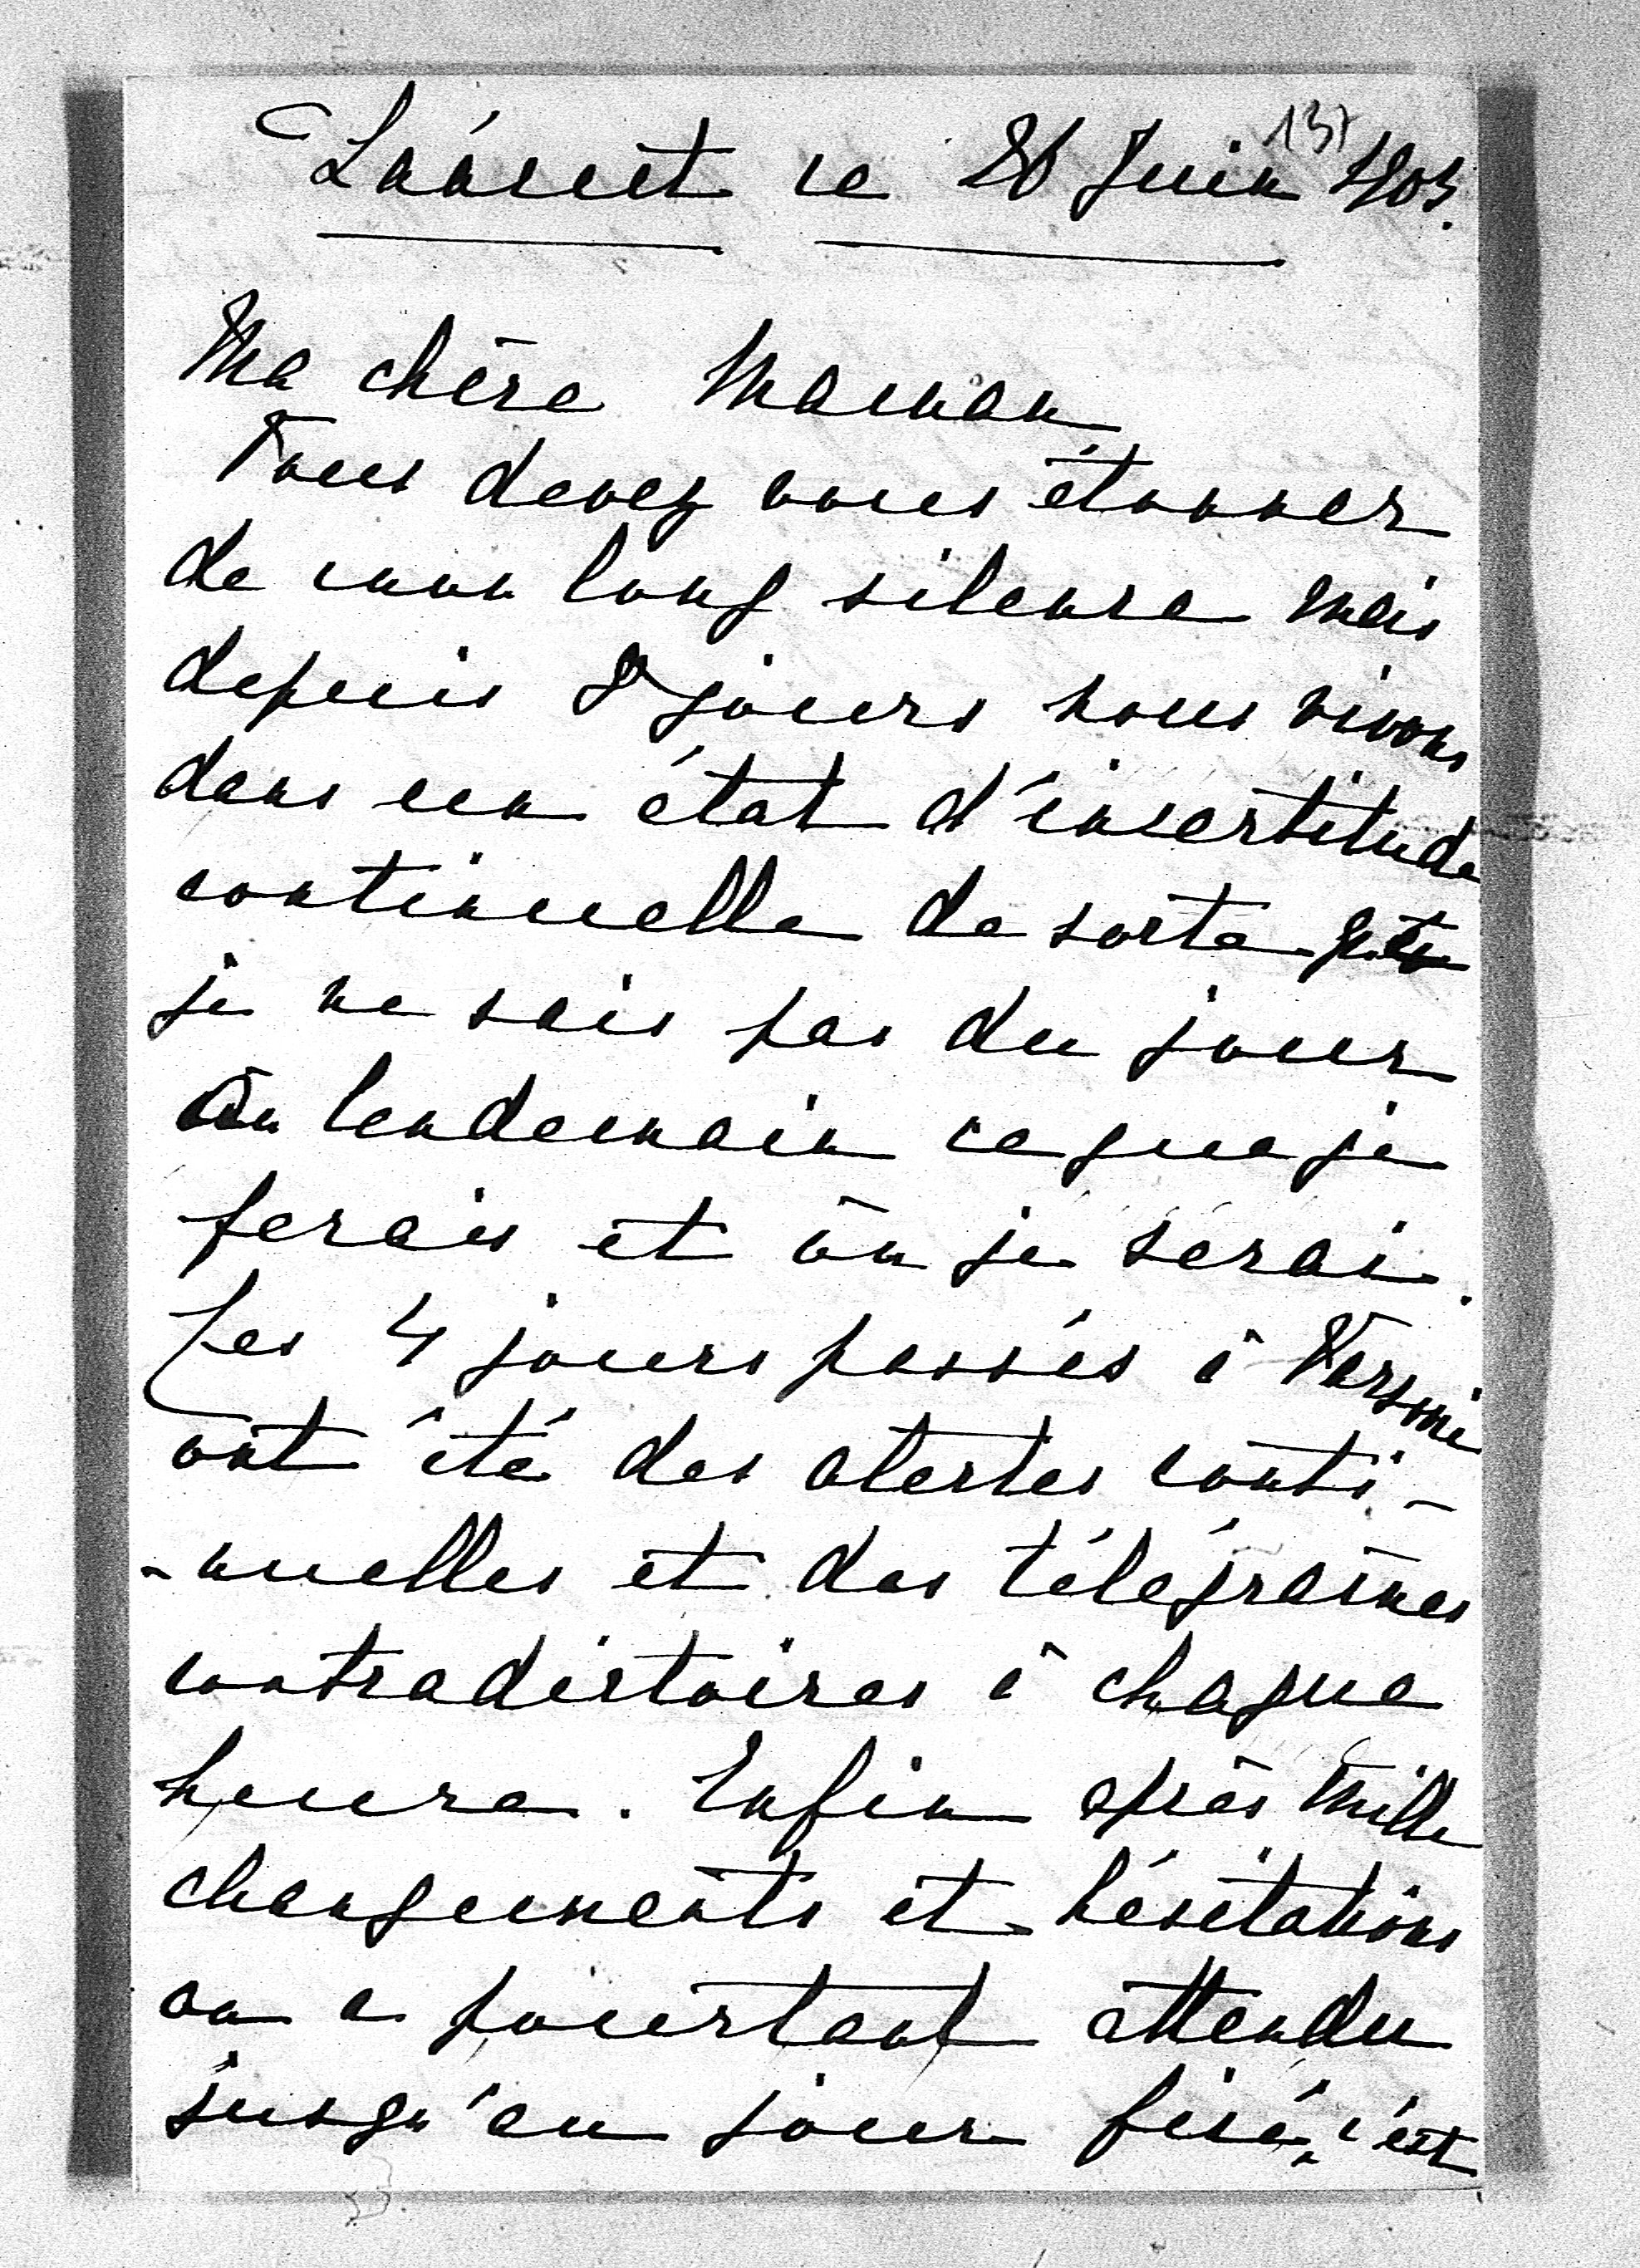 137
Łańcut ce 26 Juin 1903.
Ma chère Maman
Vous devez vous étonner
de mon long silence mais
depuis 8 jours nous vivons
dans un état d'incertitude
continuelle de sorte que
je ne sais pas du jour
au lendemain ce que je
ferais et où je serai.
Les 4 jours passés à Varsovie
ont été des alertes conti-
-nuelles et des télégrames
contradictoires à chaque
heure. Enfin après mille
changements et hésitations
on a pourtant attendu
jusqu'au jour fixé, c'est